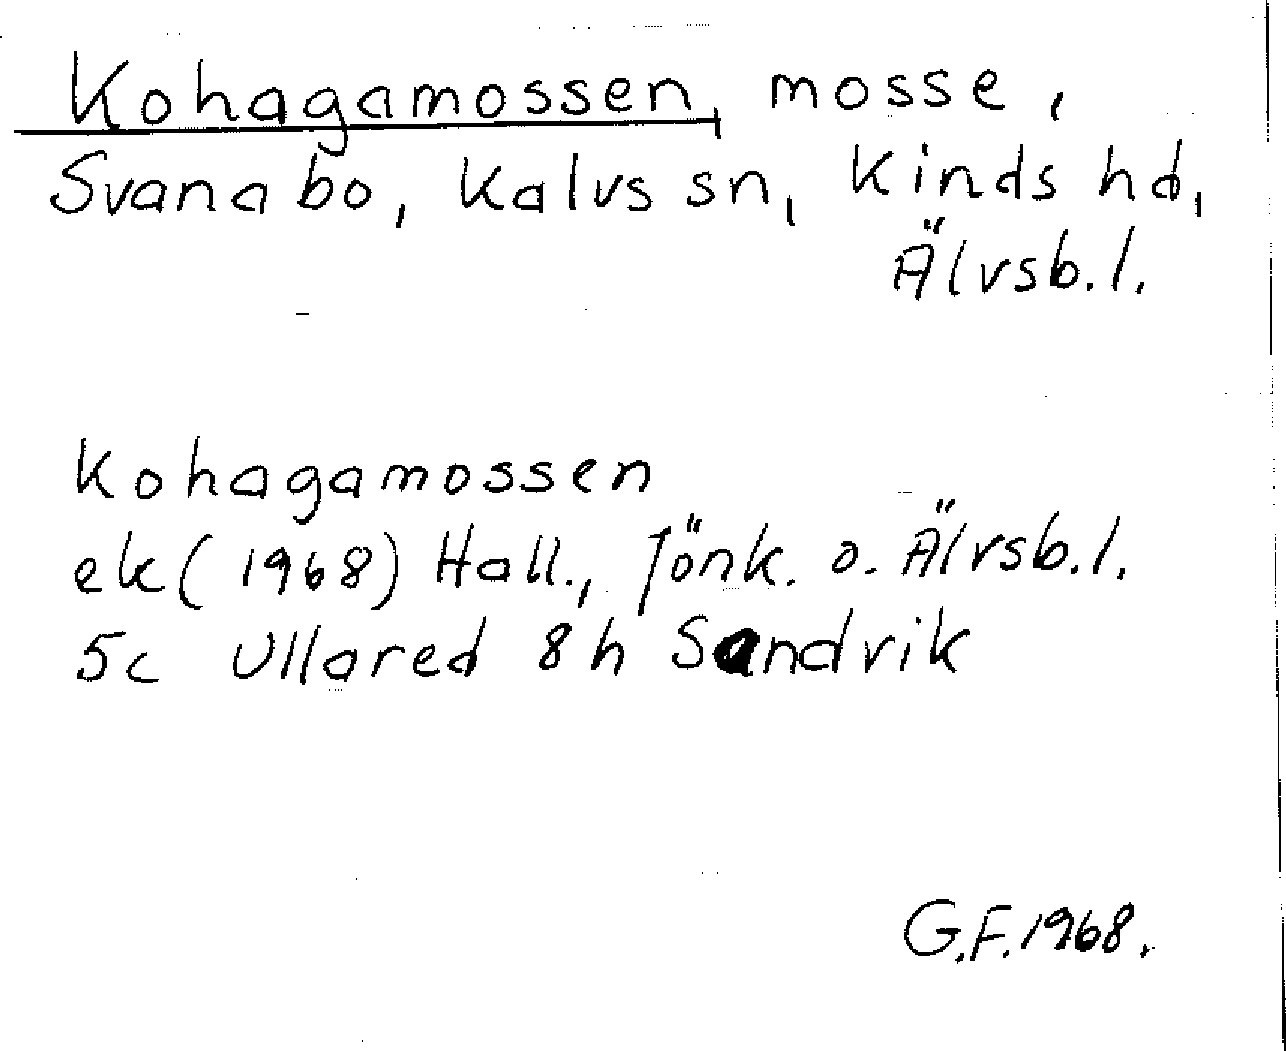 Kohagamossen, mosse,
Svanabo, Kalvs sn, Kinds hd,
Älvsb. l.
Kohagamossen
ek (1968) Hall., Jönk. o. Älvsb. l.
5c Ullared 8h Sandvik
G.F. 1968.